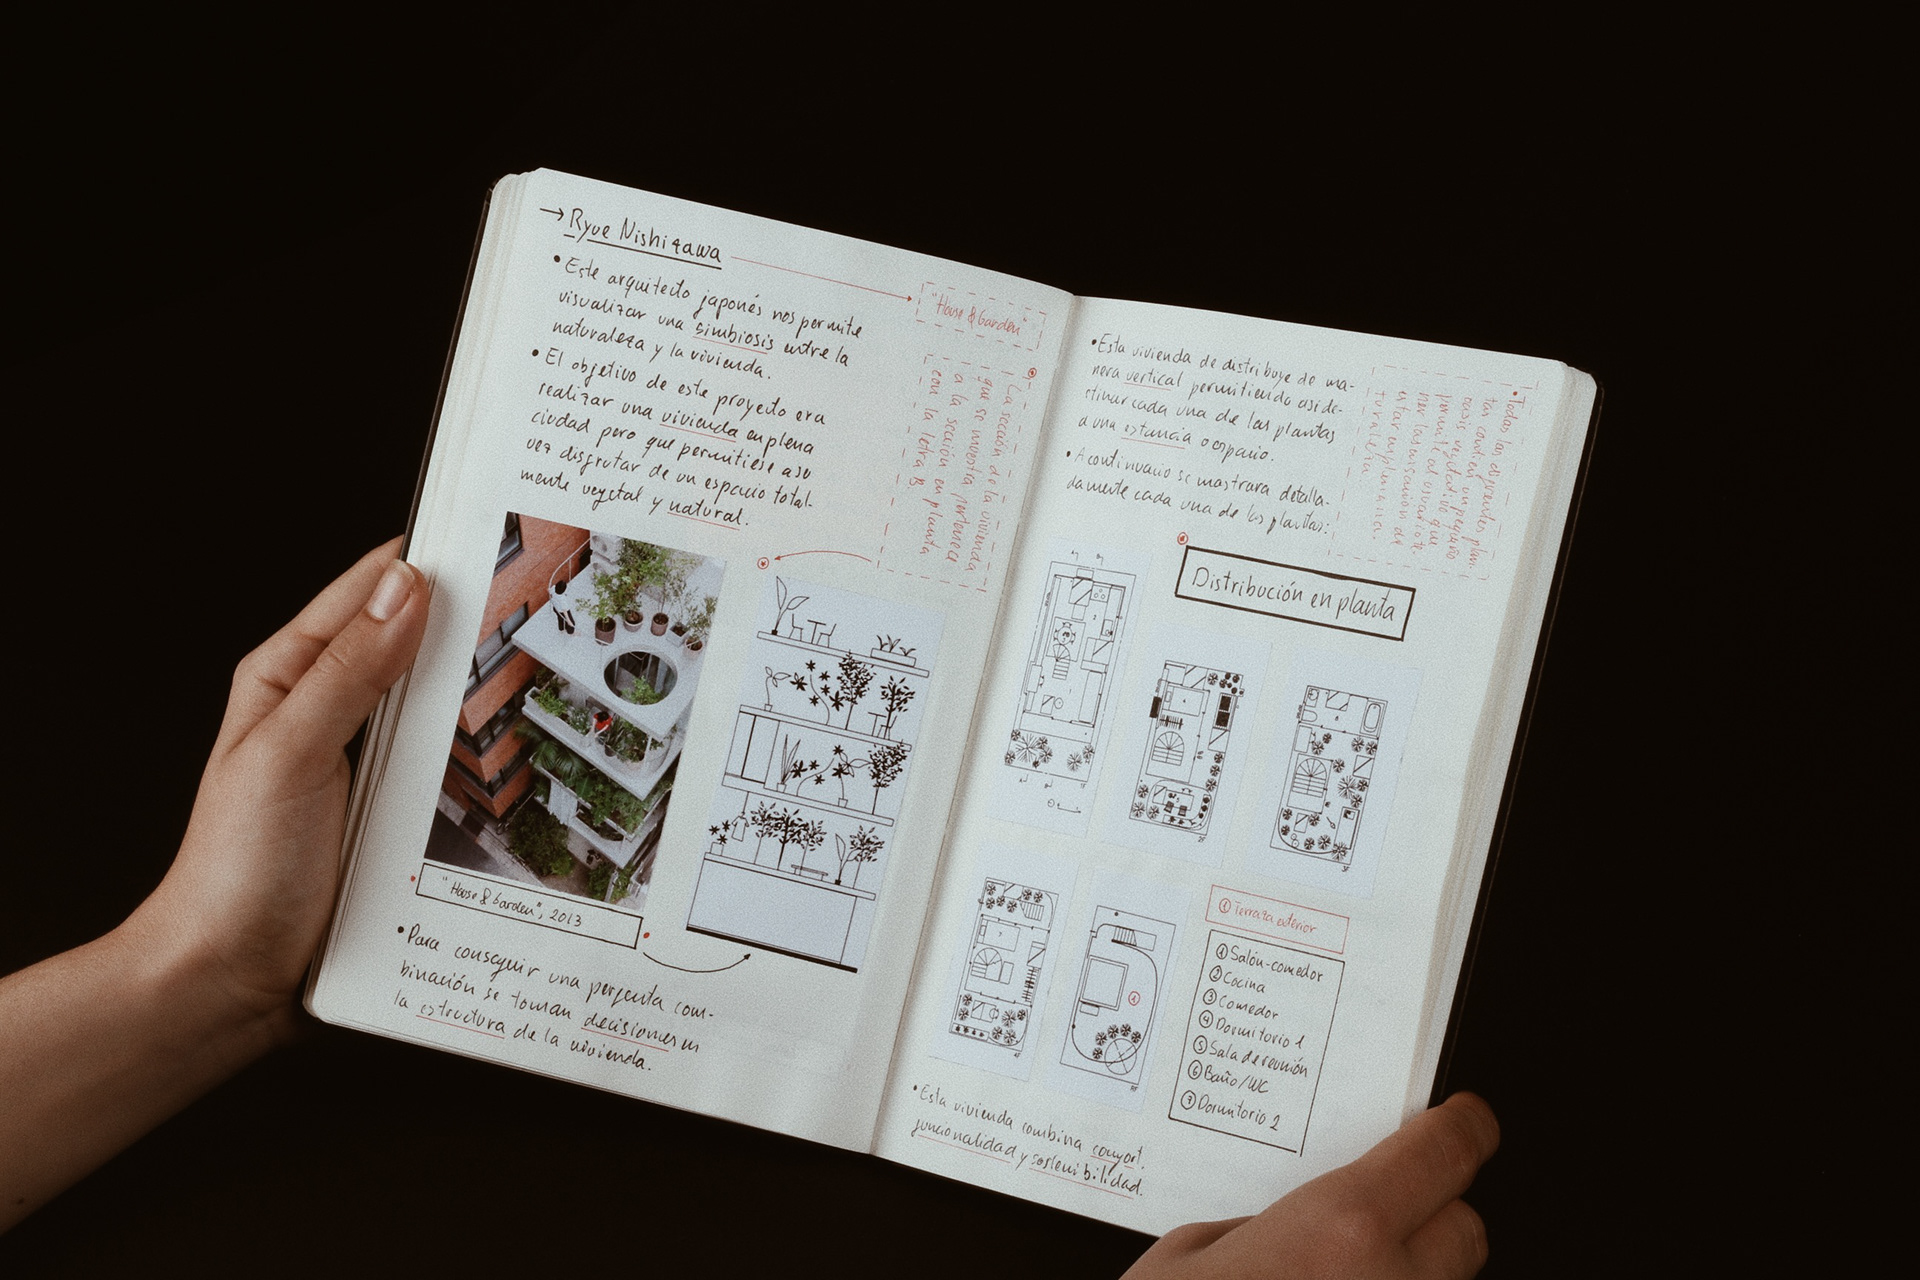 → Ryue Nishizawa
"House & Garden"
• Este arquitecto japonés nos permite
visualizar una simbiosis entre la
naturaleza y la vivienda.
• El objetivo de este proyecto era
realizar una vivienda en plena
ciudad pero que permitiese a su
vez disfrutar de un espacio total-
mente vegetal y natural.
La sección de la vivienda
que se muestra pertenece
a la sección en planta
con la letra B.
"House & Garden", 2013
• Para conseguir una perfecta com-
binación se toman decisiones en
la estructura de la vivienda.
• Esta vivienda de distribuye de ma-
nera vertical permitiendo asi de-
stinar cada una de las plantas
a una estancia o espacio.
• A continuacio se mostrara detalla-
damente cada una de las plantas:
• Todas las diferentes plan-
tas contienen un pequeño
oasis vegetativo que
permite al usuario te-
ner la sensación de
estar en plena na-
turaleza.
Distribución en planta
① Terraza exterior
① Salón-comedor
② Cocina
③ Comedor
④ Dormitorio 1
⑤ Sala de reunión
⑥ Baño/WC
⑦ Dormitorio 2
• Esta vivienda combina confort,
funcionalidad y sostenibilidad.